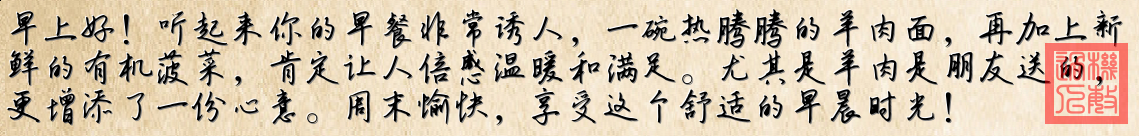 早上好！听起来你的早餐非常诱人，一碗热腾腾的羊肉面，再加上新
鲜的有机菠菜，肯定让人倍感温暖和满足。尤其是羊肉是朋友送的，
更增添了一份心意。周末愉快，享受这个舒适的早晨时光！